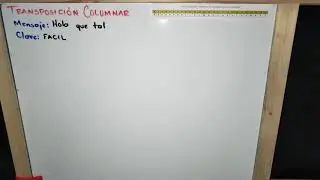 TRANSPOSICIÓN COLUMNAR
Mensaje: Hola que tal
Clave: FACIL